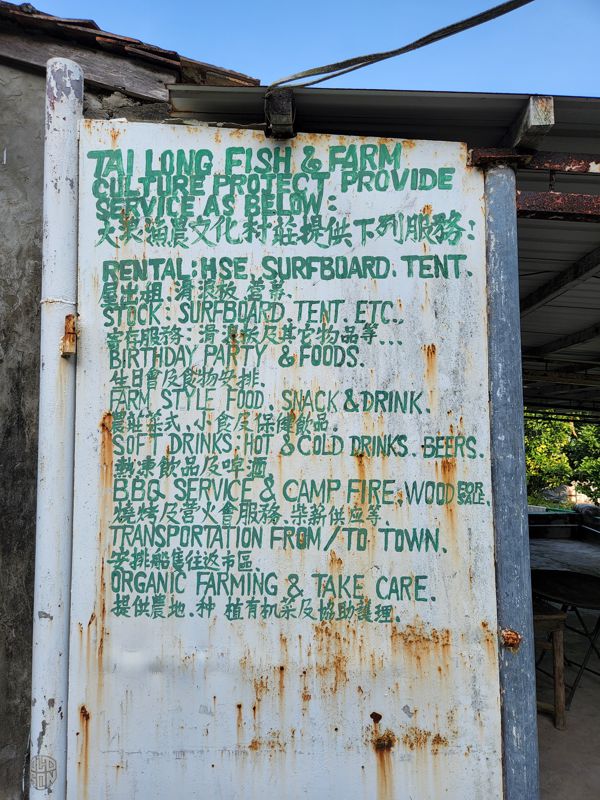 TAI LONG FISH & FARM
CULTURE PROJECT PROVIDE
SERVICE AS BELOW:
大浪漁農文化村莊提供下列服務:
RENTAL: HSE. SURFBOARD. TENT.
屋出組.滑浪板.营幕.
STOCK: SURFBOARD. TENT. ETC..
寄存服務:滑浪板及其它物品等...
BIRTHDAY PARTY & FOODS.
生日會及食物安排.
FARM STYLE FOOD. SNACK & DRINK.
農莊菜式.小食及保健飲品.
SOFT DRINKS: HOT & COLD DRINKS. BEERS.
熱凍飲品及啤酒
BBQ SERVICE & CAMP FIRE. WOOD FOR
燒烤及营火會服務.柴薪供应等.
TRANSPORTATION FROM/TO TOWN.
安排船隻往返市區.
ORGANIC FARMING & TAKE CARE.
提供農地.种植有机菜及協助護理.